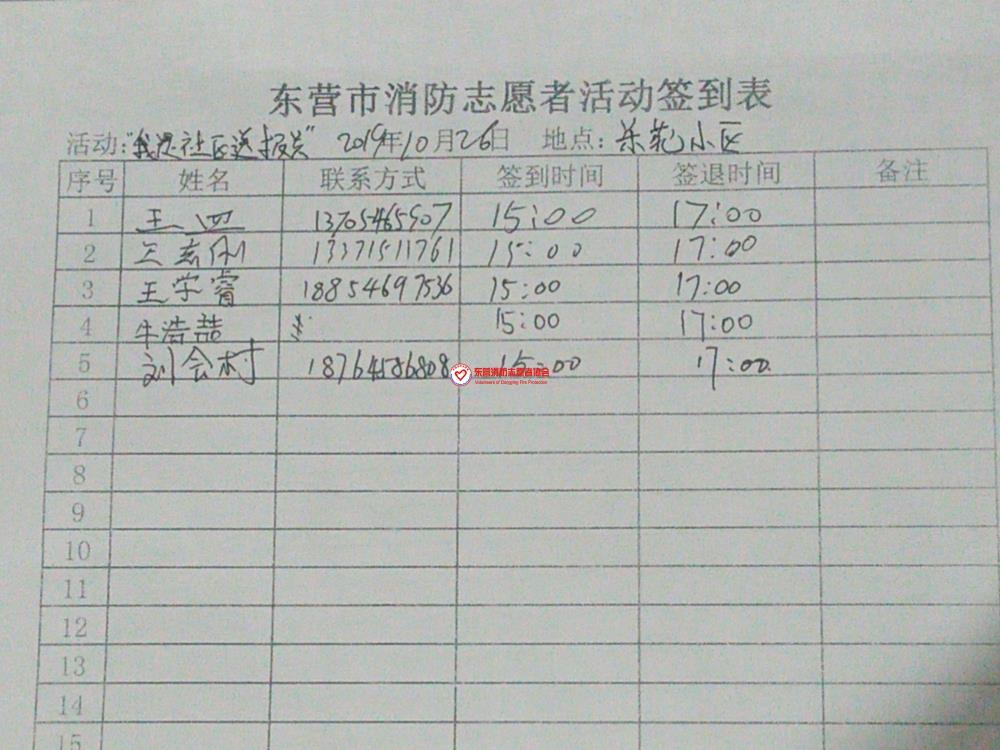 东营市消防志愿者活动签到表
活动:"我是社区送报员" 2019年10月26日 地点: 小区
序号 姓名 联系方式 签到时间 签退时间 备注
1 王四 13705465907 15:00 17:00
2 王 刚 13371511761 15:00 17:00
3 王学睿 18854697536 15:00 17:00
4 牛浩喆 15:00 17:00
5 刘会村 18764586808 15:00 17:00
东营消防志愿者协会
Volunteers of Dongying Fire Protection
6
7
8
9
10
11
12
13
14
15